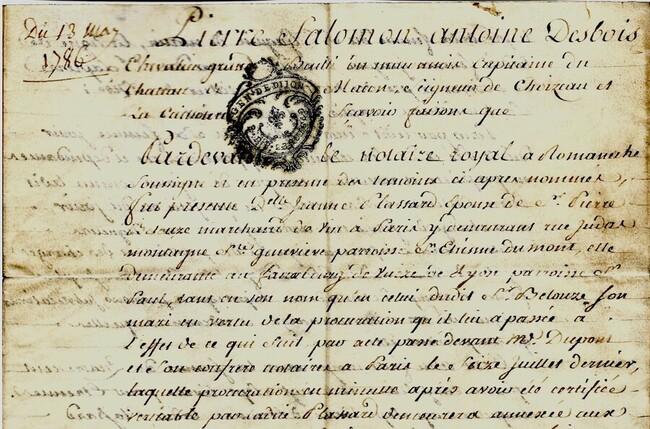 Du 13 May
1786
Pierre Salomon antoine Desbois
Chevalier grand Bailli du maconnois capitaine du
Chateau Macon seigneur de Choizeau et
La Scavoir faisons que
GEN. DE DIJON
Pardevant le notaire royal a Romaneche
Soussigné et en presence des temoins ci apres nommés,
fut presente Delle Jeanne Plassard Epouse de Sr. Pierre
Belouze marchand de vin à Paris y demeurant rue judas
montagne Ste genevieve parroisse St Etienne du mont, elle
demeurante au de de Lyon parroisse St
Paul, tant en son nom qu'en celui dudit Sr. Belouze son
mari en vertu de la procuration qu'il lui a passée a
l'effet de ce qui suit par acte passé devant Me Dupont
et Son confrere notaires a Paris le Seize juillet dernier,
laquelle procuration en minutte après avoir été certifiée
veritable par ladite Plassard demeurera annexée aux